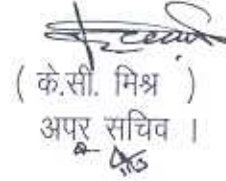 ( के.सी. मिश्र )
अपर सचिव ।